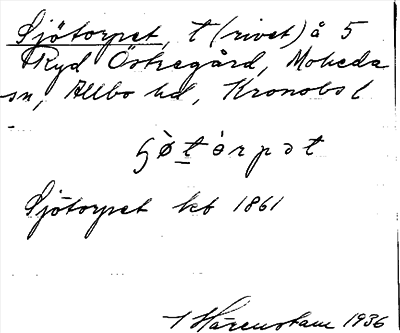 Sjötorpet, t(rivet) å 5
Ryd Östregård, Moheda
sn, Allbo hd, Kronobs l
ʃø̀t ò rpət
Sjötorpet kb 1861
Härenstam 1936